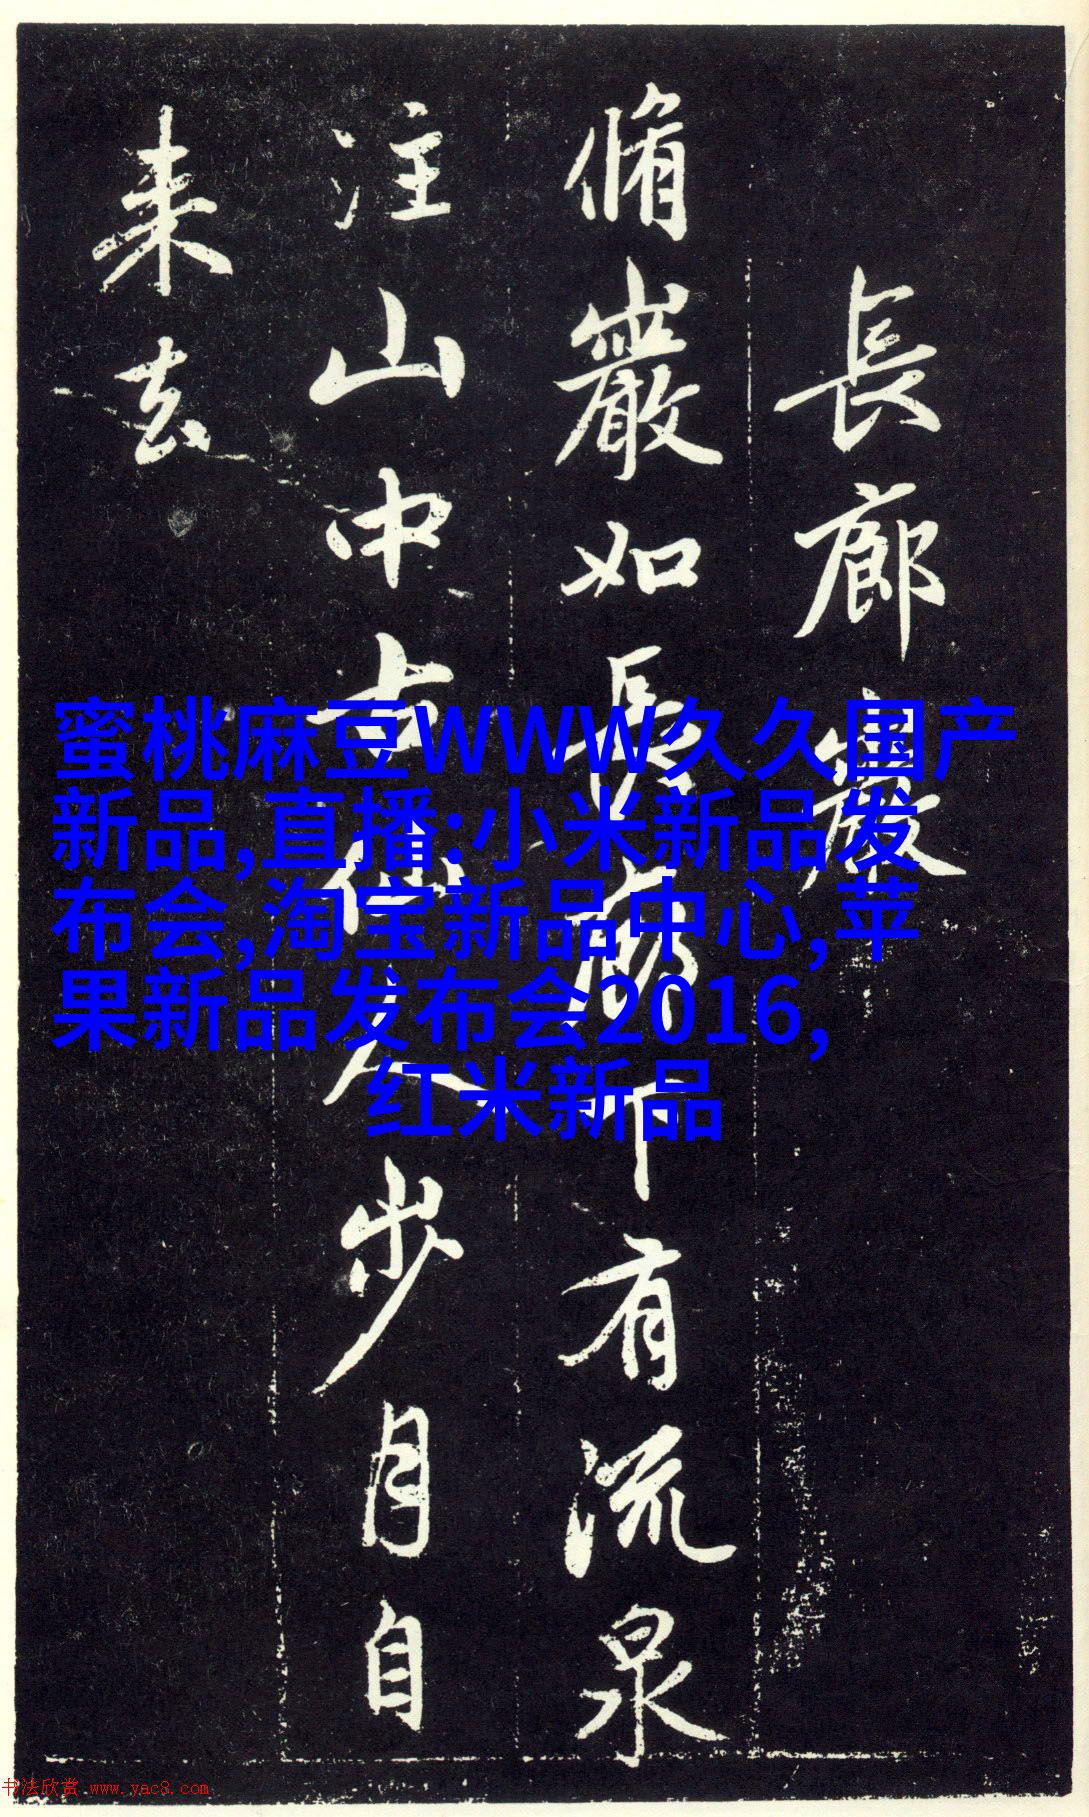 長廊巖
脩巖如長廊下有流泉
注山中古仙人步月自
来去
蜜桃麻豆WWW久久国产
新品,直播:小米新品发
布会,淘宝新品中心,苹
果新品发布会2016,
红米新品
书法欣赏 www.yac8.com